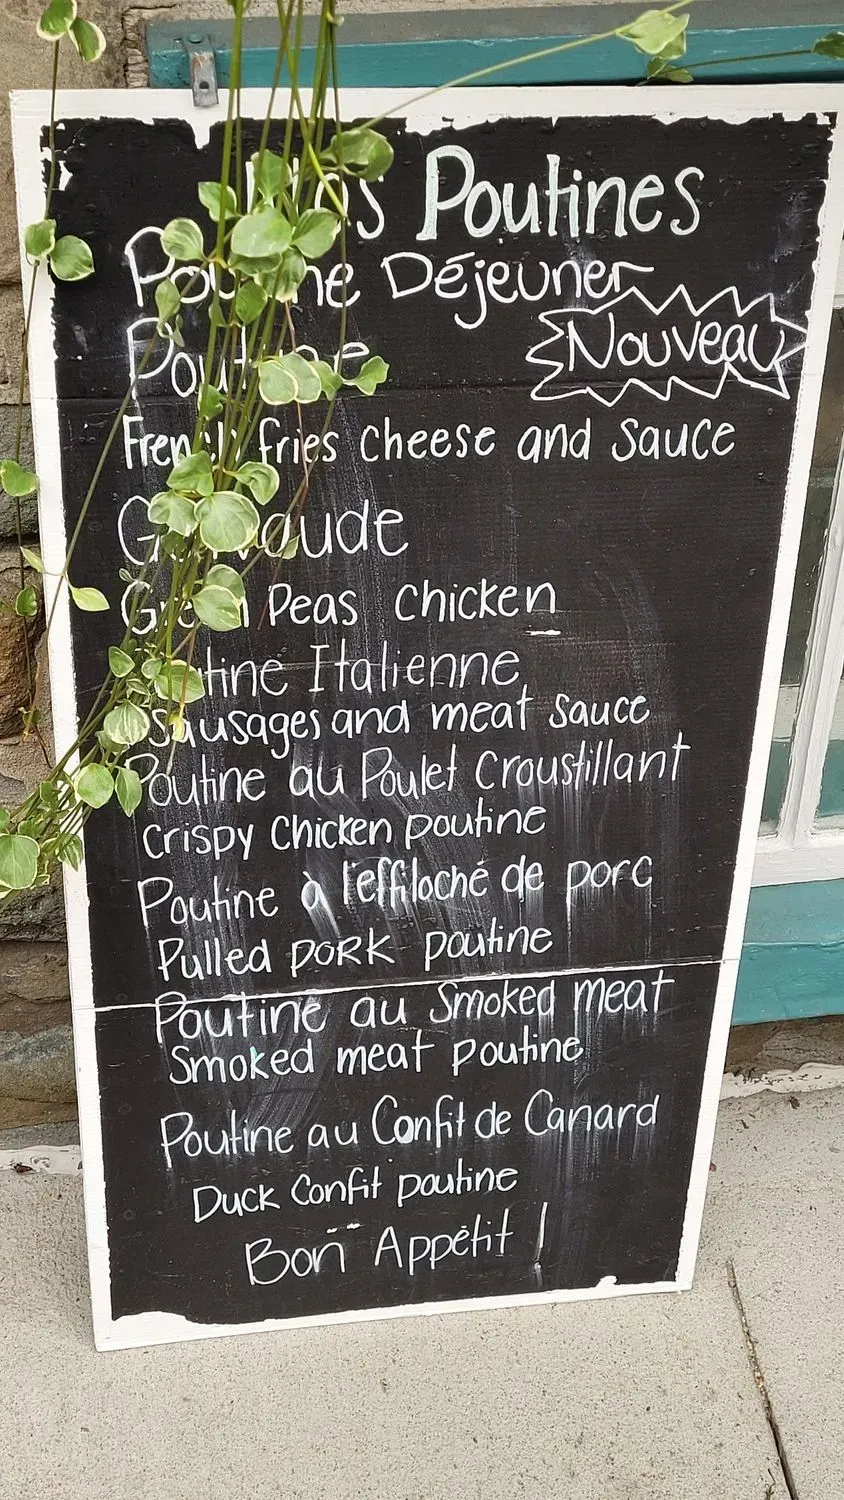 Nos Poutines
Poutine Déjeuner
Poutine Nouveau
French fries cheese and sauce
Galvaude
Green Peas chicken
Poutine Italienne
sausages and meat sauce
Poutine au Poulet Croustillant
crispy chicken poutine
Poutine à l'effiloché de porc
Pulled pork poutine
Poutine au Smoked meat
Smoked meat poutine
Poutine au Confit de Canard
Duck Confit poutine
Bon Appétit !